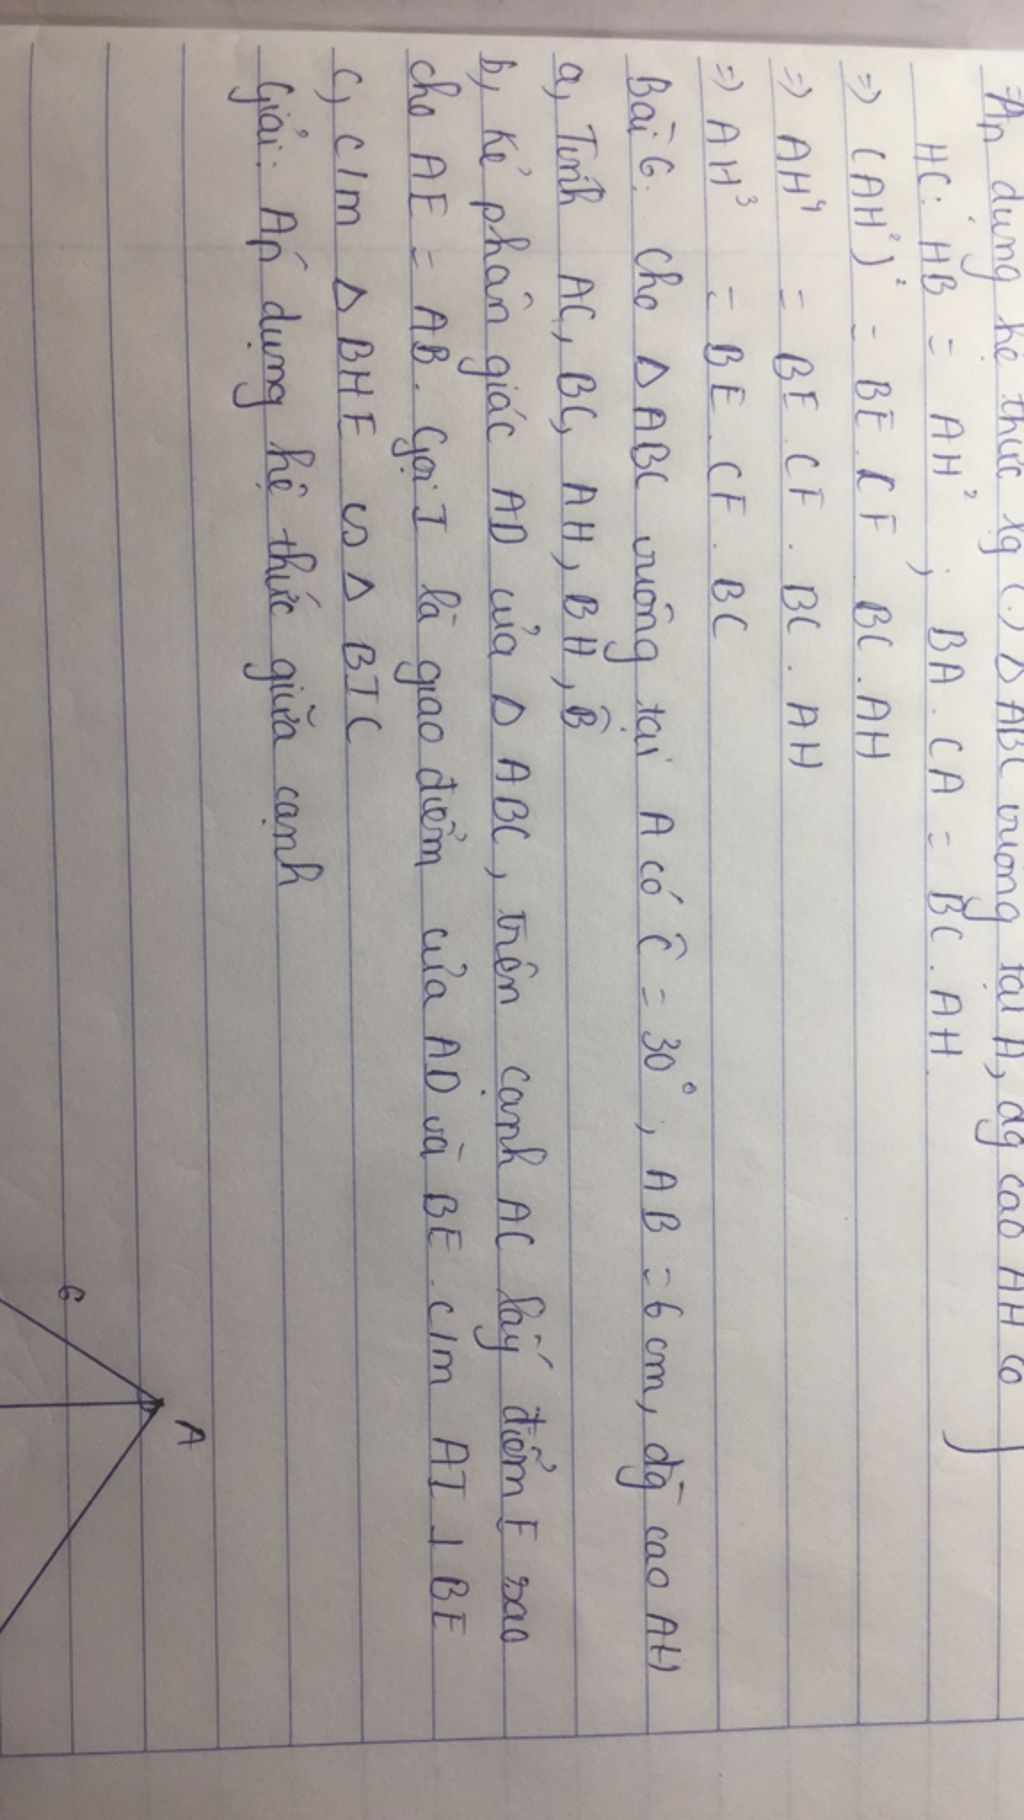 Áp dụng hệ thức lg (.) Δ ABC vuông tại A, dg cao AH có
HC. HB = AH² ; BA . CA = BC . AH
=> (AH²)² = BE . CF . BC . AH
=> AH⁴ = BE . CF . BC . AH
=> AH³ = BE . CF . BC
Bài 6: Cho Δ ABC vuông tại A có Ĉ = 30°, AB = 6 cm, đg cao AH
a, Tính AC, BC, AH, BH, B̂
b, Kẻ phân giác AD của Δ ABC, trên cạnh AC lấy điểm E sao
cho AE = AB. Gọi I là giao điểm của AD và BE. C/m AI ⊥ BE
c, C/m Δ BHE ∽ Δ BIC
Giải: Áp dụng hệ thức giữa cạnh
A
6